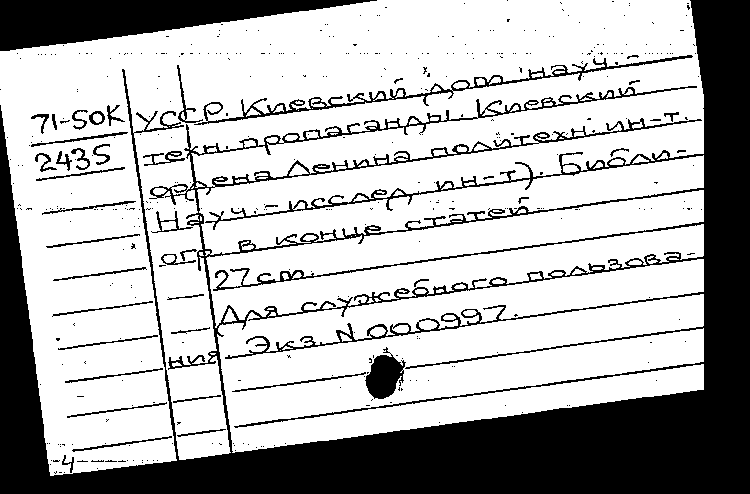 71-50К УССР. Киевский дом науч.-
2435 техн. пропаганды. Киевский
ордена Ленина политехн. ин-т.
Науч.-исслед. ин-т). Библи-
огр. в конце статей
27 cm.
Для служебного пользова-
ния. Экз. N 000997.
4